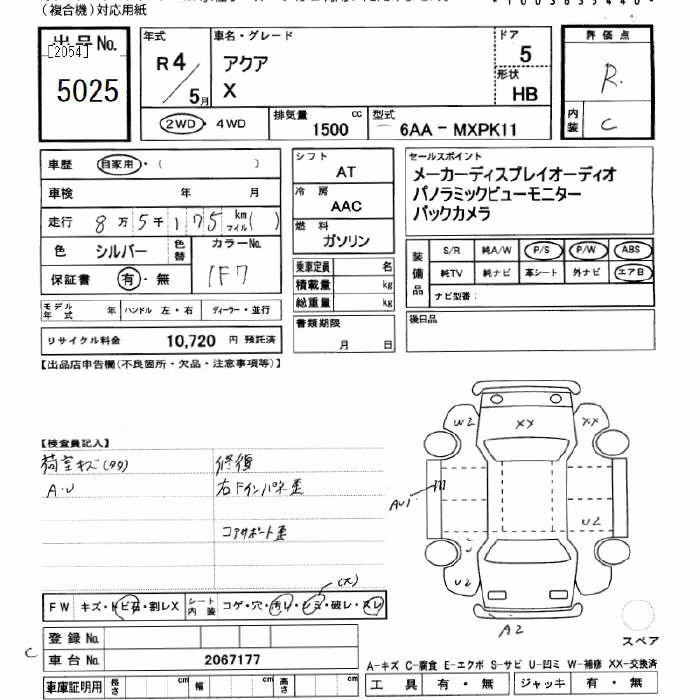 (複合機)対応用紙
出品No.
[2054]
5025
年式
R4/5月
車名・グレード
アクア
X
ドア
5
形状
HB
評価点
R
内装
C
2WD・4WD
排気量 cc
1500
型式
6AA-MXPK11
車歴 自家用・( )
車検 年 月
走行 8万5千175 km マイル( )
色 シルバー 色替
カラーNo.
1F7
保証書 有・無
モデル年式 年 ハンドル 左・右 ディーラー・並行
リサイクル料金 10,720 円 預託済
シフト
AT
冷房
AAC
燃料
ガソリン
乗車定員 名
積載量 kg
総重量 kg
書類期限
月 日
セールスポイント
メーカーディスプレイオーディオ
パノラミックビューモニター
バックカメラ
装備品
S/R 純A/W P/S P/W ABS
純TV 純ナビ 革シート 外ナビ エアB
ナビ型番:
後日品
【出品店申告欄(不良箇所・欠品・注意事項等)】
【検査員記入】
荷室キズ(タタ) 修復
A・U 右Fインパネ歪
コアサポート歪
(大)
FW キズ・トビ石・割レX シート内装 コゲ・穴・汚レ・シミ・破レ・スレ
登録No.
C
車台No. 2067177
車庫証明用 長さ cm 幅 cm 高さ cm
W2 XX XX
AU1
U2
U
U2
A2
スペア
A-キズ C-腐食 E-エクボ S-サビ U-凹ミ W-補修 XX-交換済
工具 有・無 ジャッキ 有・無